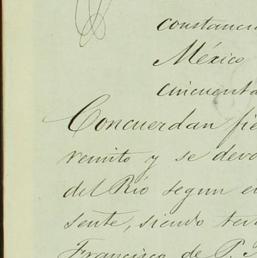 constanci
México
cincuenta
Concuerdan fie
remito y se devo
del Rio segun e
sente, siendo te
Francisco de P.